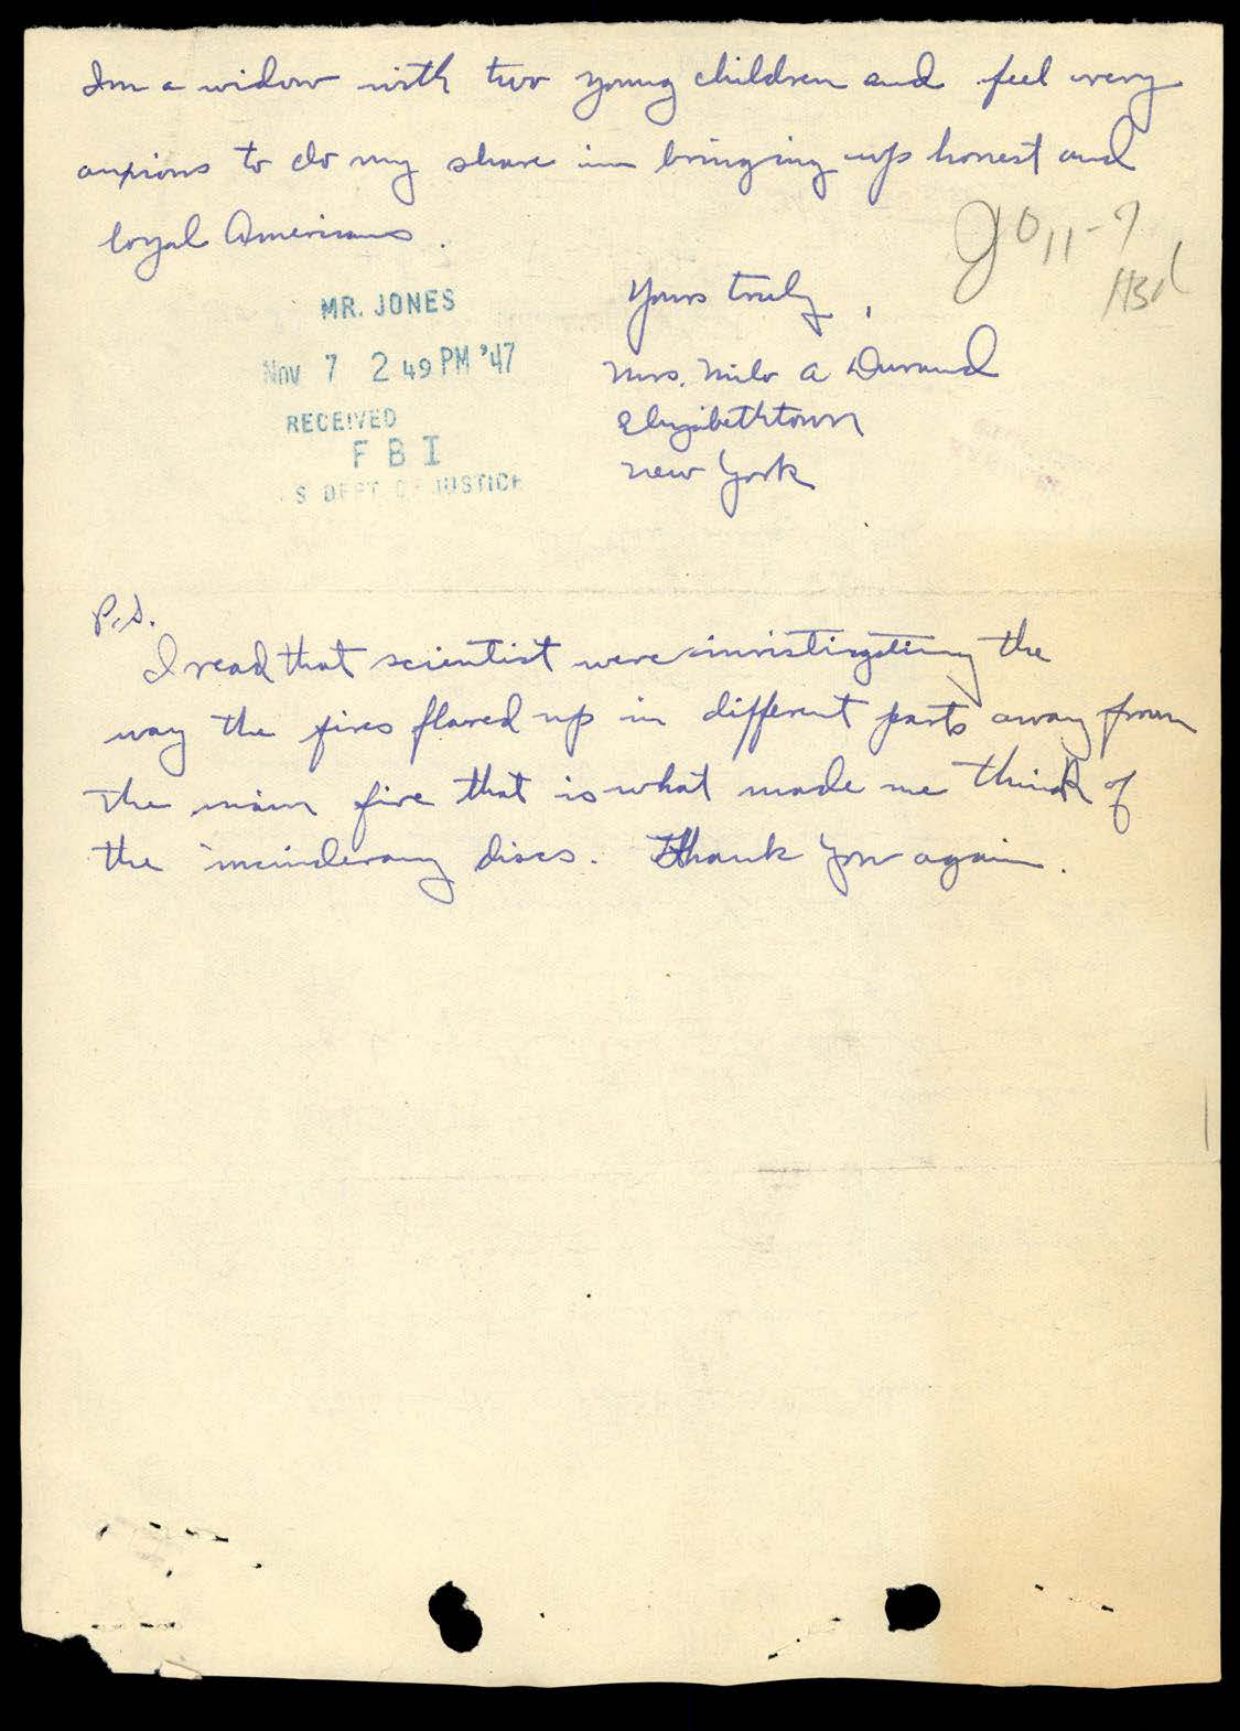 Im a widow with two young children and feel very
anxious to do my share in bringing up honest and
loyal Americans.
MR. JONES
Nov 7 2 49 PM '47
RECEIVED
F B I
S DEPT OF JUSTICE
Yours truly,
Mrs. Milo A Durand
Elizabethtown
New York
P.S.
I read that scientist were invistigating the
way the fires flared up in different parts away from
the main fire that is what made me think of
the incinderary discs. Thank you again.